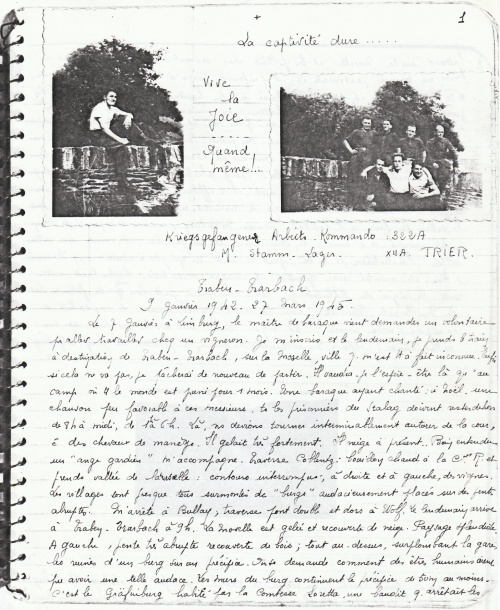 1
La captivité dure .....
Vive
la
Joie
Quand
même !..
Kriegsgefangener Arbeits - Kommando 322A
M. Stamm - Lager - XIIA TRIER.
Traben - Trarbach
9 Janvier 1942 - 27 Mars 1945 -
Le 7 Janvier à Limburg, le maître de baraque vient demander un volontaire
pr aller travailler chez un vigneron. Je m'inscris et le lendemain, je prends le train
à destination de Traben - Trarbach, sur la Moselle, ville q. m'est tt à fait inconnue.
si cela ne va pas, je tâcherai de nouveau de partir. Il vaudra, je l'espère - être là qu'au
camp où tt le monde est puni pour 1 mois. Une baraque ayant chanté, à Noël, une
chanson peu favorable à ces messieurs, ts les prisonniers du Stalag doivent rester dehors
de 8h à midi, de 1h à 6h. Là, ns devons tourner interminablement autour de la cour,
c. des chevaux de manège. Il gelait très fortement. Il neige à présent. Bien entendu
un "ange gardien" m'accompagne. Traverse Coblentz. bouillon chaud à la Cx R. et
prends vallée de Moselle : contours interrompus, à droite et à gauche, des vignes.
Les villages sont presque tous surmontés de "burgs" audacieusement placés sur des pentes
abruptes. M'arrête à Bullay, traverse pont double et dors à Wolf, le lendemain, arrive
à Traben - Trarbach à 9h. La Moselle est gelée et recouverte de neige. Paysage splendide
A gauche, pente très abrupte recouverte de bois ; tout au-dessus, surplombant la gare,
les ruines d'un burg sur un précipice. On se demande comment des êtres humains aient
pu avoir une telle audace. Les murs du burg continuent le précipice de 60m au moins.
C'est le Gräfinburg habité par la Comtesse Loretta, une bandit q. arrêtait les